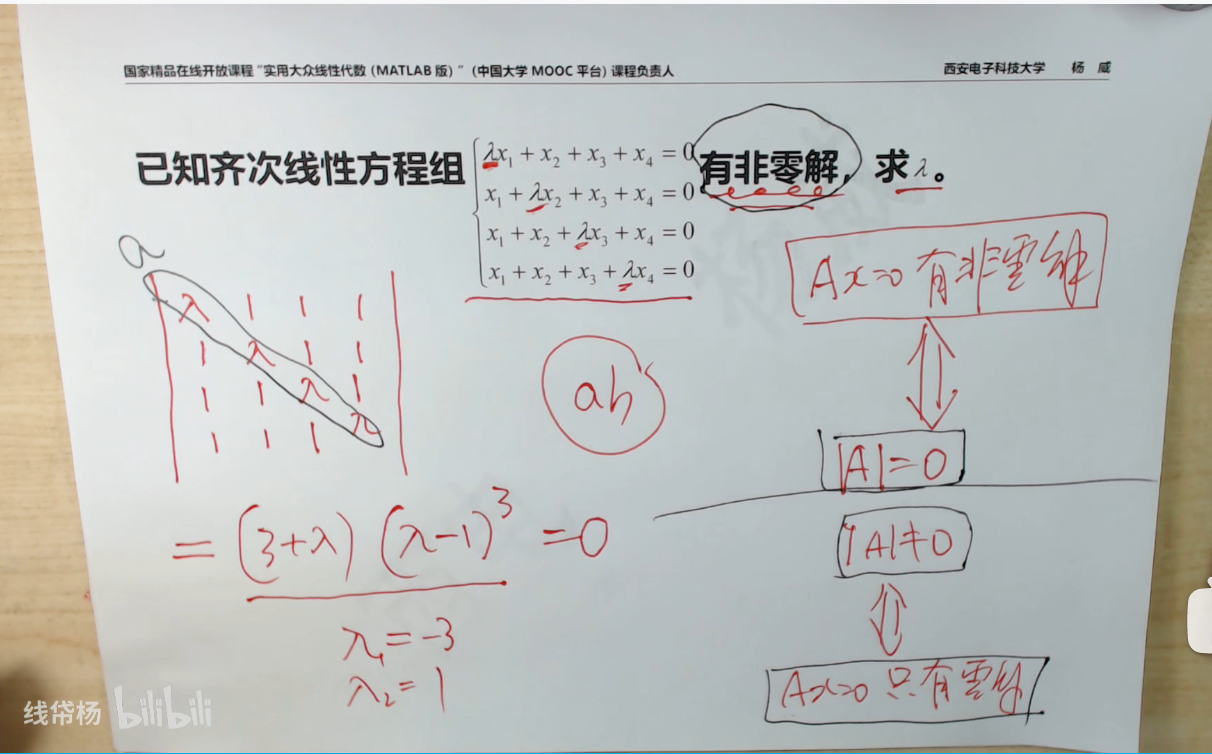 国家精品在线开放课程“实用大众线性代数（MATLAB 版）”（中国大学 MOOC 平台）课程负责人 西安电子科技大学 杨 威
已知齐次线性方程组 有非零解，求λ。
λx₁ + x₂ + x₃ + x₄ = 0
x₁ + λx₂ + x₃ + x₄ = 0
x₁ + x₂ + λx₃ + x₄ = 0
x₁ + x₂ + x₃ + λx₄ = 0
a
λ 1 1 1
1 λ 1 1
1 1 λ 1
1 1 1 λ
ab
= (3+λ) (λ-1)³ =0
λ₁ = -3
λ₂ = 1
Ax=0 有非零解
|A|=0
|A|≠0
Ax=0 只有零解
线帒杨 bilibili